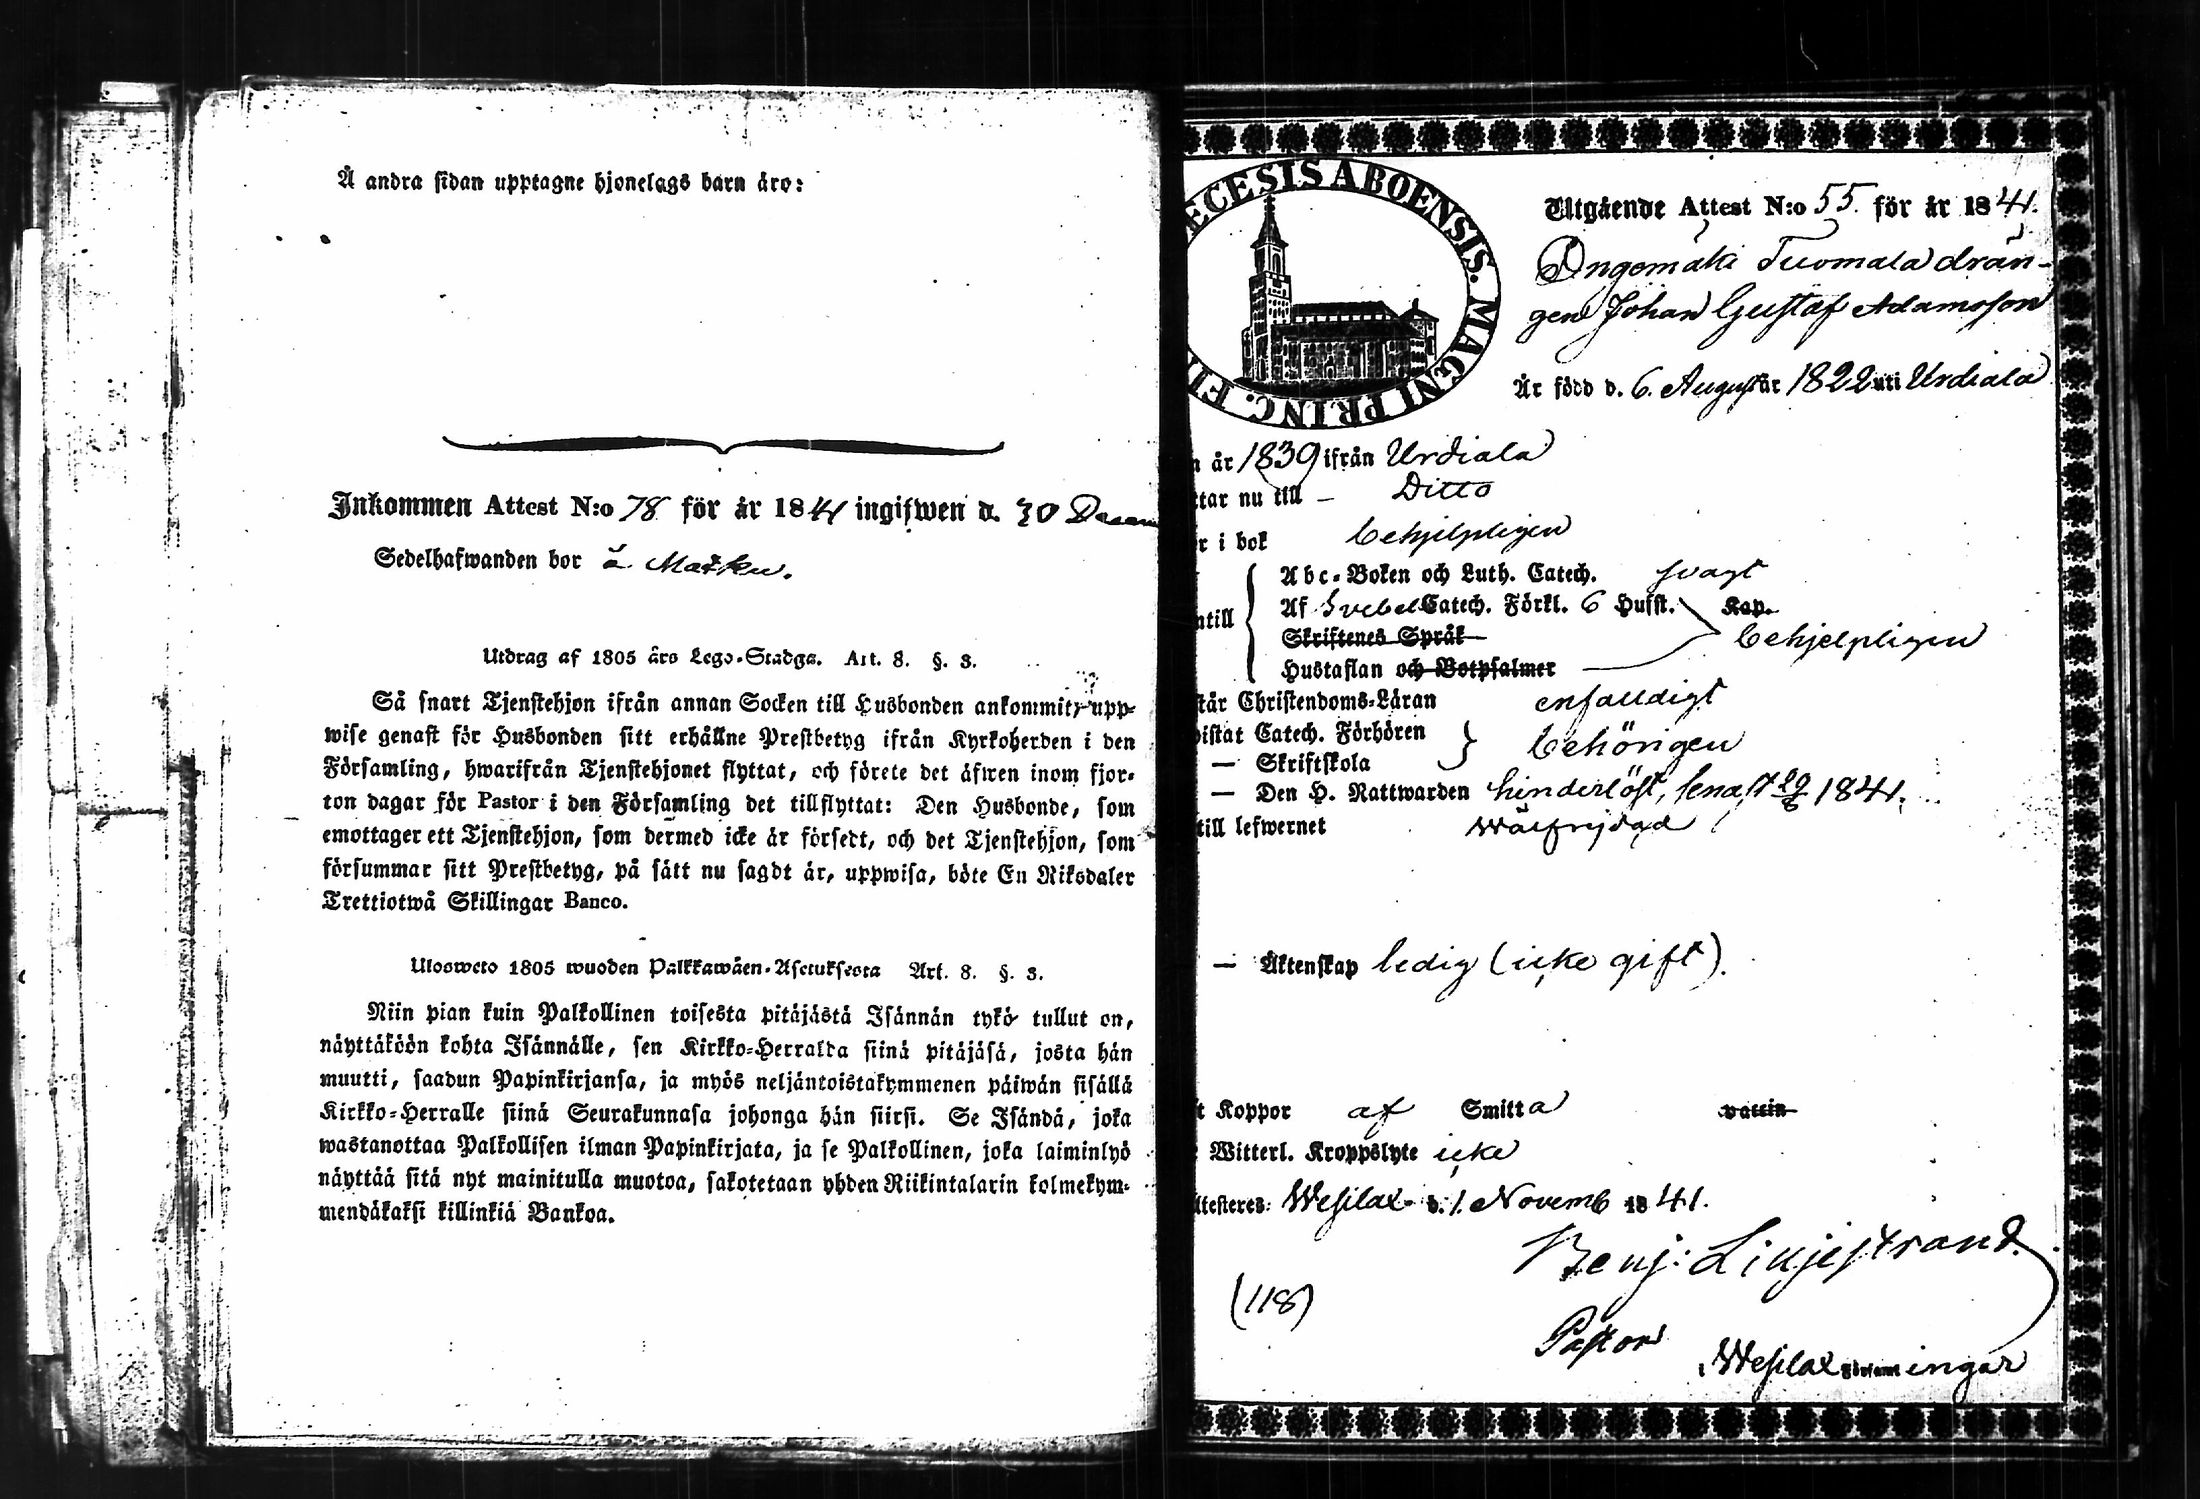 Å andra sidan upptagne hjonelags barn äro:
Inkommen Attest N:o 78 för år 1841 ingifwen d. 30 Decem
Sedelhafwanden bor å Matku.
Utdrag af 1805 års Lego-Stadga. Art. 8. §. 3.
Så snart Tjenstehjon ifrån annan Socken till Husbonden ankommit, upp-
wise genast för Husbonden sitt erhållne Prestbetyg ifrån Kyrkoherden i den
Församling, hwarifrån Tjenstehjonet flyttat, och förete det äfwen inom fjor-
ton dagar för Pastor i den Församling det tillflyttat: Den Husbonde, som
emottager ett Tjenstehjon, som dermed icke är försedt, och det Tjenstehjon, som
försummar sitt Prestbetyg, på sätt nu sagdt är, uppwisa, böte En Riksdaler
Trettiotwå Skillingar Banco.
Ulosweto 1805 wuoden Palkkawäen-Asetuksesta Art. 8. §. 3.
Niin pian kuin Palkollinen toisesta pitäjästä Isännän tykö tullut on,
näyttäköön kohta Isännälle, sen Kirkko-Herralda siinä pitäjäsä, josta hän
muutti, saadun Papinkirjansa, ja myös neljäntoistakymmenen päiwän sisällä
Kirkko-Herralle siinä Seurakunnasa johonga hän siirsi. Se Isändä, joka
wastanottaa Palkollisen ilman Papinkirjata, ja se Palkollinen, joka laiminlyö
näyttää sitä nyt mainitulla muotoa, sakotetaan yhden Riikintalarin kolmekym-
mendäkaksi killinkiä Bankoa.
ECESIS ABOENSIS. MAGNI PRINC. FI
Utgående Attest N:o 55. för år 1841.
Ongemäki Tuomala drän-
gen Johan Gustaf Adamsson
Är född d. 6. August år 1822 uti Urdiala
n år 1839 ifrån Urdiala
ttar nu till – Ditto
r i bok behjelpligen
ntill
Abc-Boken och Luth. Catech. svagt
Af Svebel Catech. Förkl. 6 Hufst. Kap.
Skriftenes Språk
behjelpligen
Hustaflan och Botpsalmer
står Christendoms-Läran enfaldigt
istat Catech. Förhören
behörigen
— Skriftskola
— Den H. Nattwarden hinderlöst, senast 29/8 1841.
till lefwernet wälfrejdad
— Äktenskap ledig (icke gift).
t Koppor af Smitta vaccin
Witterl. Kroppslyte icke
ttesteres: Wesilax d. 1. Novemb 1841.
Benj: Liljestrand.
(118)
Pastor
i Wesilax Församlingar